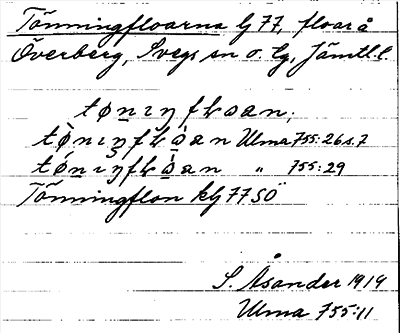 Tönningfloarna lj 77, floar å
Överberg, Svegs sn o. lg, Jämtl. l.
tønıŋflɷan;
tø̀nıŋflɷ̀an Ulma 755:26 s.7
tø̀nıŋflɷ̀an " 755:29
Tönningflon klj 77 SÖ
S. Åsander 1919
Ulma 755:11